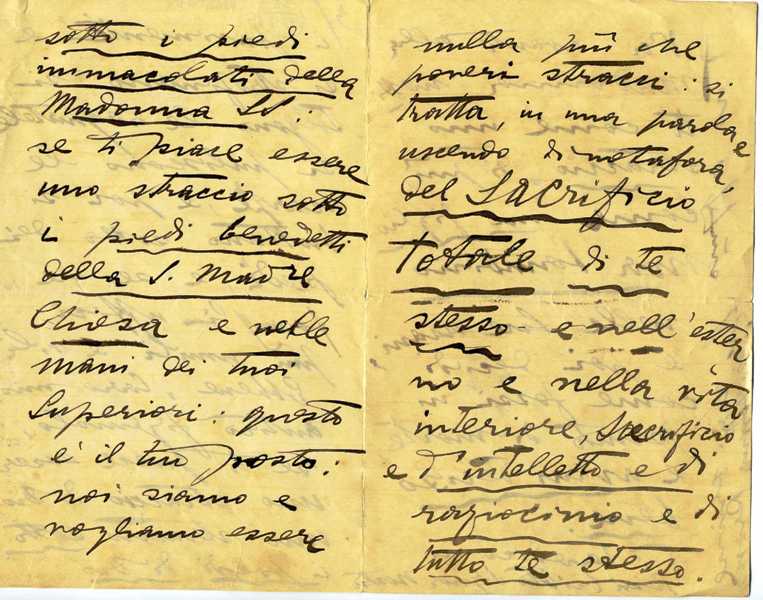 sotto i piedi
immacolati della
Madonna SS.:
se ti piace essere
uno straccio sotto
i piedi benedetti
della S. Madre
Chiesa e nelle
mani dei tuoi
Superiori: questo
è il tuo posto:
noi siamo e
vogliamo essere
nulla più che
poveri stracci: si
tratta, in una parola e
uscendo di metafora,
del Sacrificio
totale di te
stesso - e nell'ester
no e nella vita
interiore, Sacrificio
e d'intelletto e di
raziocinio e di
tutto te stesso.